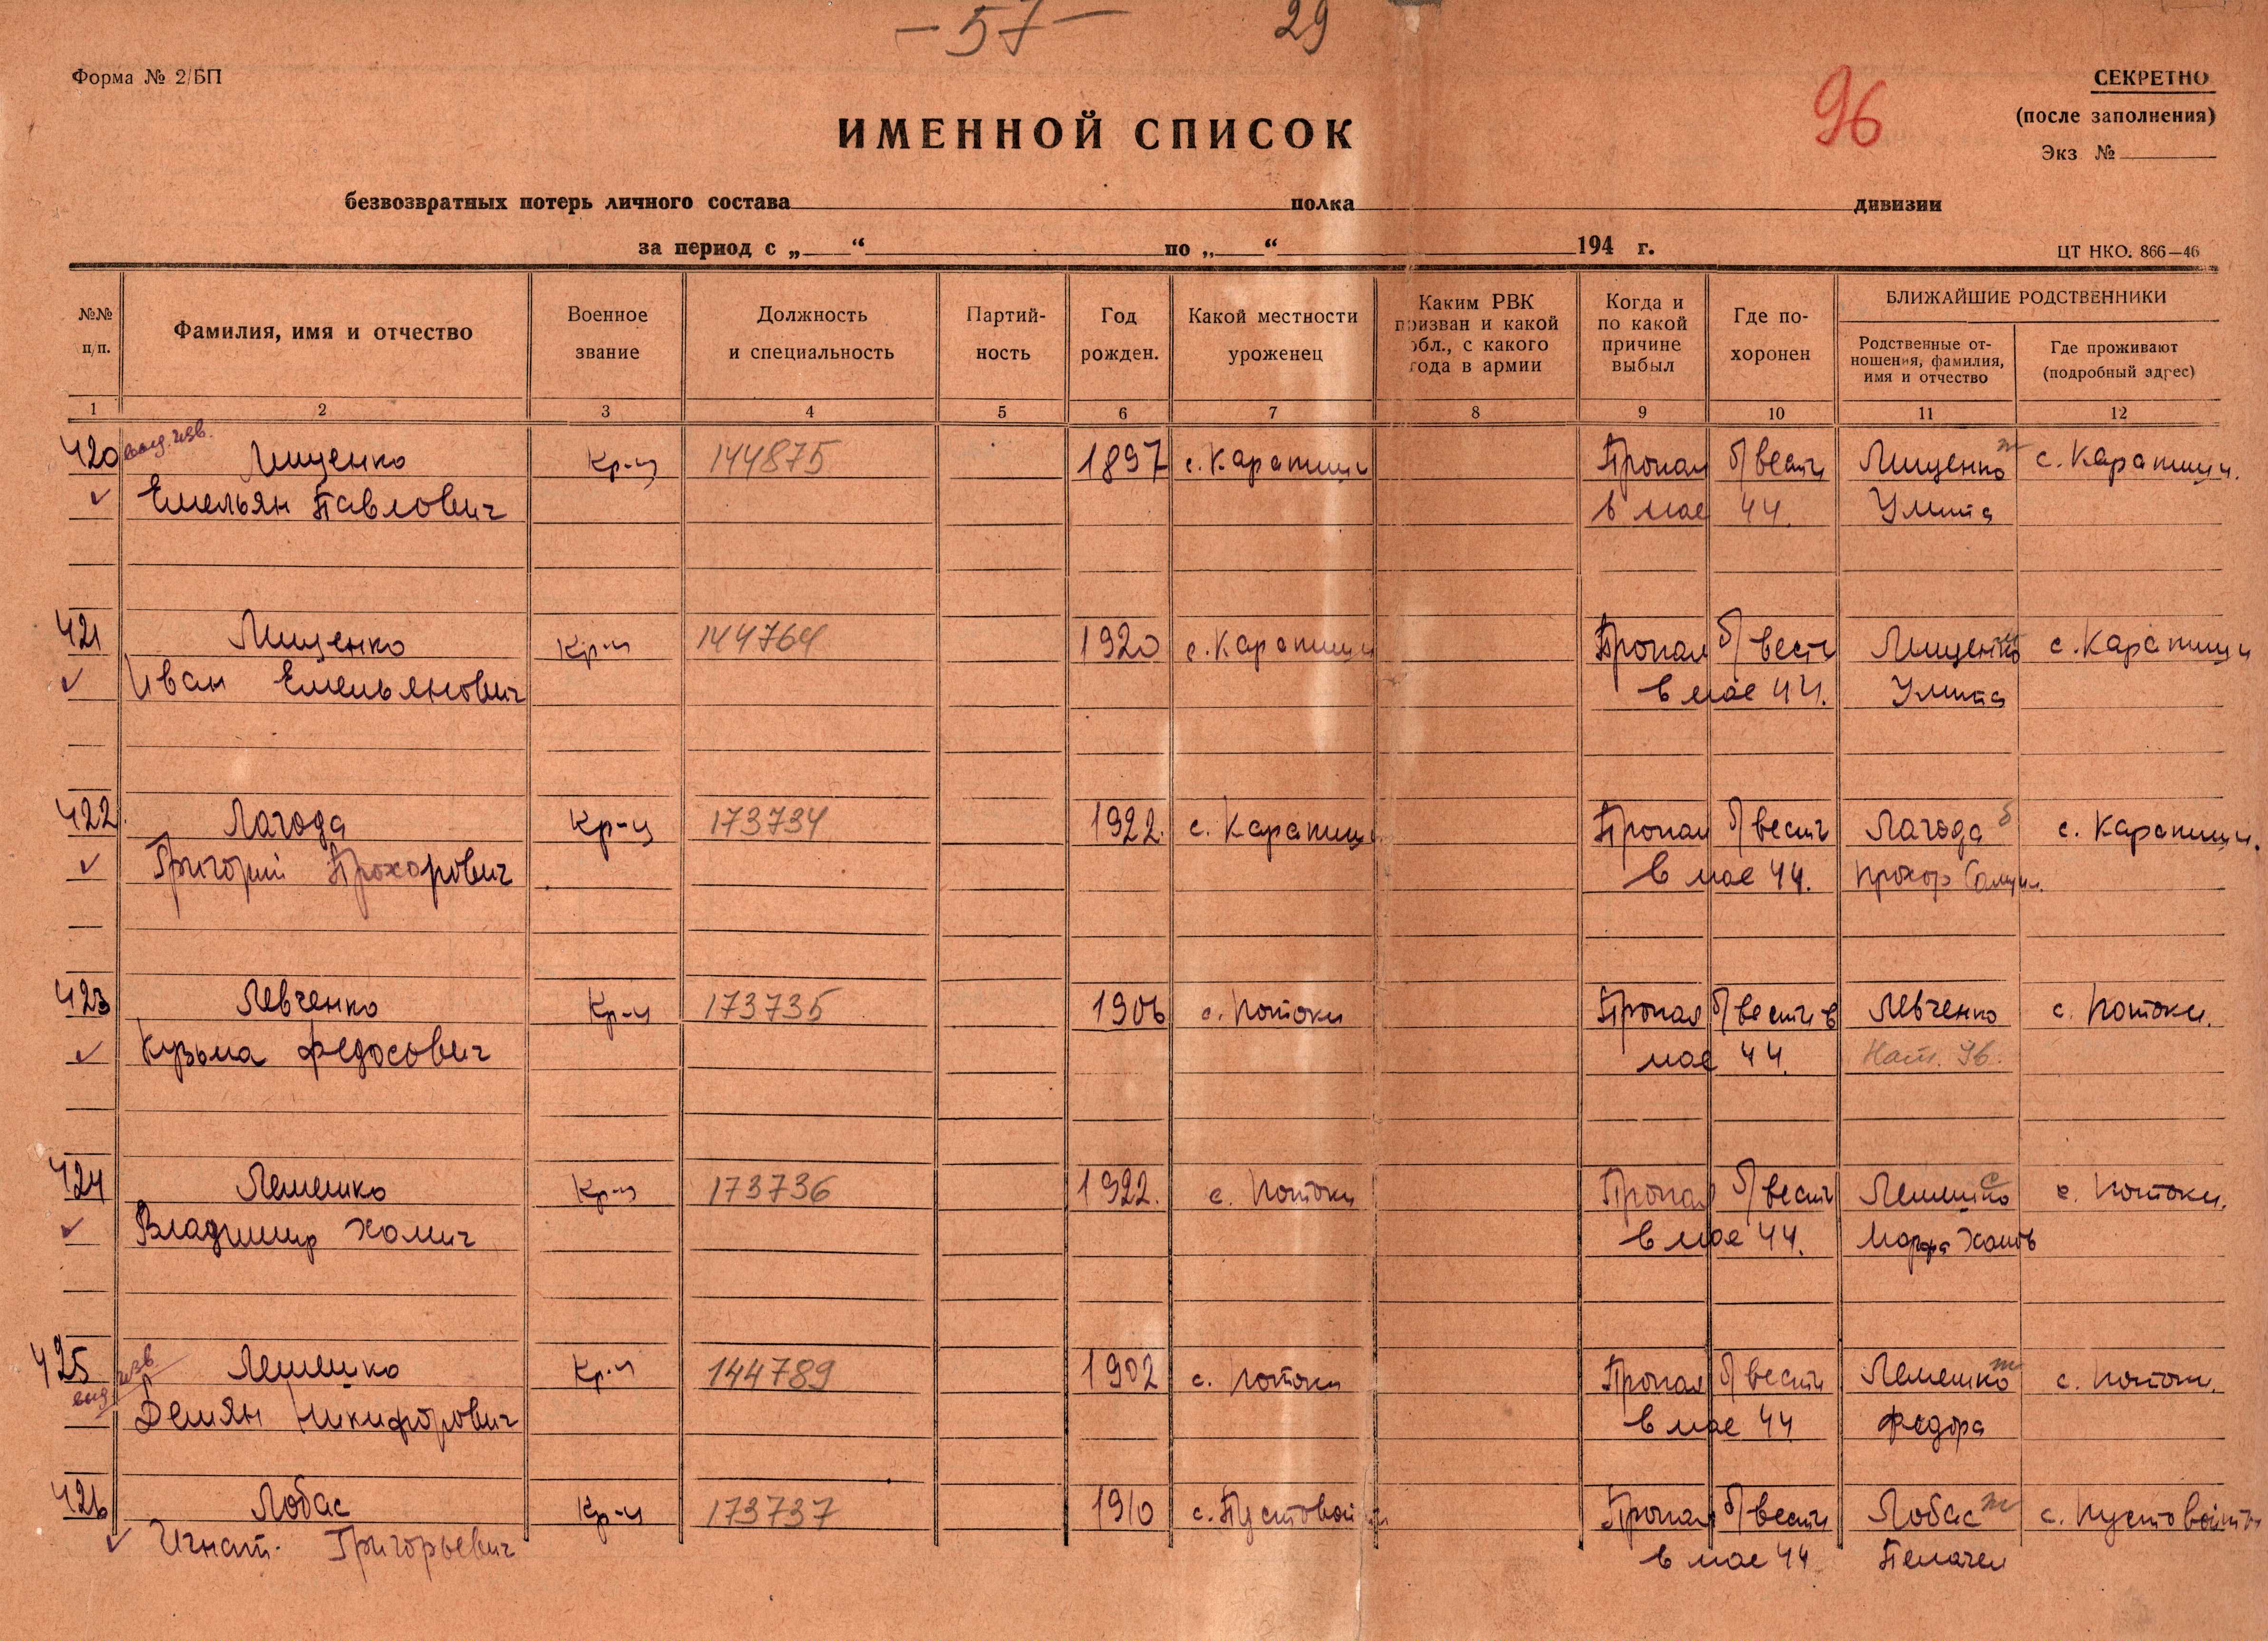 — 57 — 29
Форма № 2/БП
96
СЕКРЕТНО
(после заполнения)
Экз №
ИМЕННОЙ СПИСОК
безвозвратных потерь личного состава полка дивизии
за период с „ “ по „ “ 194 г.
ЦТ НКО. 866—46
№№ п/п.
Фамилия, имя и отчество
Военное звание
Должность и специальность
Партий-ность
Год рожден.
Какой местности уроженец
Каким РВК призван и какой обл., с какого года в армии
Когда и по какой причине выбыл
Где по-хоронен
БЛИЖАЙШИЕ РОДСТВЕННИКИ
Родственные от-ношения, фамилия, имя и отчество
Где проживают (подробный адрес)
1 2 3 4 5 6 7 8 9 10 11 12
420 Лищенко Кр-ц 144875 1897 с. Карапищи Пропал б/вести Лищенко ж с. Карапищи.
Емельян Павлович в мае 44. Улита
421 Лищенко Кр-ц 144764 1920 с. Карапищи Пропал б/вести Лищенко с. Карапищи
Иван Емельянович в мае 44. Улита
422. Лагода Кр-ц 173734 1922. с. Карапищи Пропал б/вести Лагода с. Карапищи.
Григорий Прохорович в мае 44. Прохор
423 Левченко Кр-ц 173735 1906 с. Потоки Пропал б/вести в Левченко с. Потоки.
Кузьма Федосович мае 44.
424 Лемешко Кр-ц 173736 1922. с. Потоки Пропал б/вести Лемешко с с. Потоки.
Владимир Хомич в мае 44. Марфа
425 Лемешко Кр-ц 144789 1902 с. Потоки Пропал б/вести Лемешко ж с. Потоки.
Демян Никифорович в мае 44 Федора
426 Лобас Кр-ц 173737 1910 с. Пустовойты Пропал б/вести Лобас ж с. Пустовойты
Игнат. Григорьевич в мае 44 Пелагея